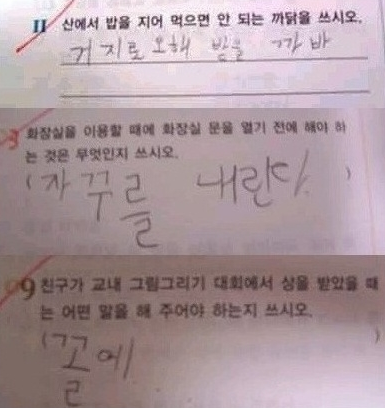 11 산에서 밥을 지어 먹으면 안 되는 까닭을 쓰시오.
거지로 오해 받을 까바
3 화장실을 이용할 때에 화장실 문을 열기 전에 해야 하
는 것은 무엇인지 쓰시오.
(자꾸를 내린다. )
9 친구가 교내 그림그리기 대회에서 상을 받았을 때
는 어떤 말을 해 주어야 하는지 쓰시오.
(꼴에 )